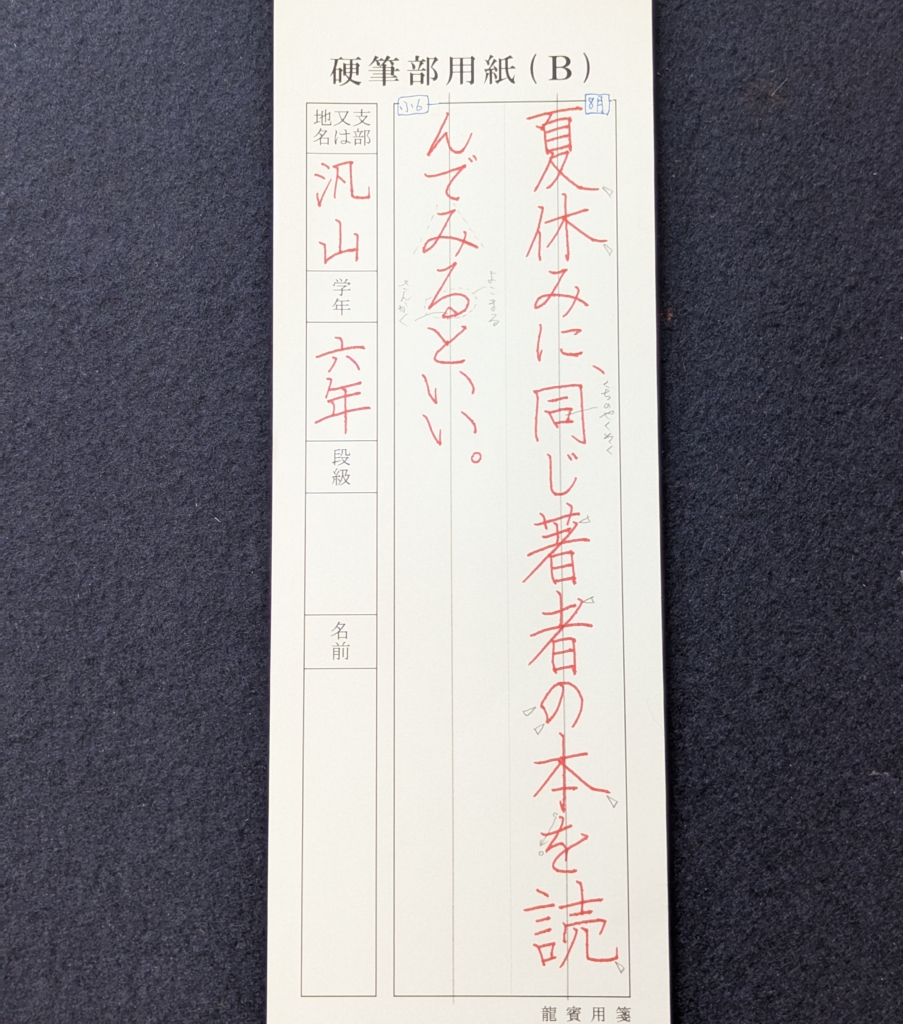 硬筆部用紙(B)
8月
小6
夏休みに、同じ著者の本を読
んでみるといい。
くちのやくそく
よこまる
さんかく
支部又は地名
汎山
学年
六年
段級
名前
龍賓用箋